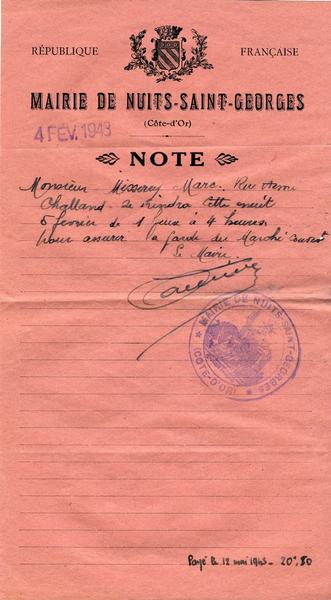 RÉPUBLIQUE FRANÇAISE
MAIRIE DE NUITS-SAINT-GEORGES
(Côte-d'Or)
4 FÉV. 1943
NOTE
Monsieur Marc. Rue Henri
Challand se rendra cette nuit
5 fevrier de 1 heure à 4 heures
pour assurer la garde du Marché couvert
Le Maire.
MAIRIE DE NUITS-SAINT-GEORGES
(CÔTE-D'OR)
Payé le 12 mai 1943 - 20f,50